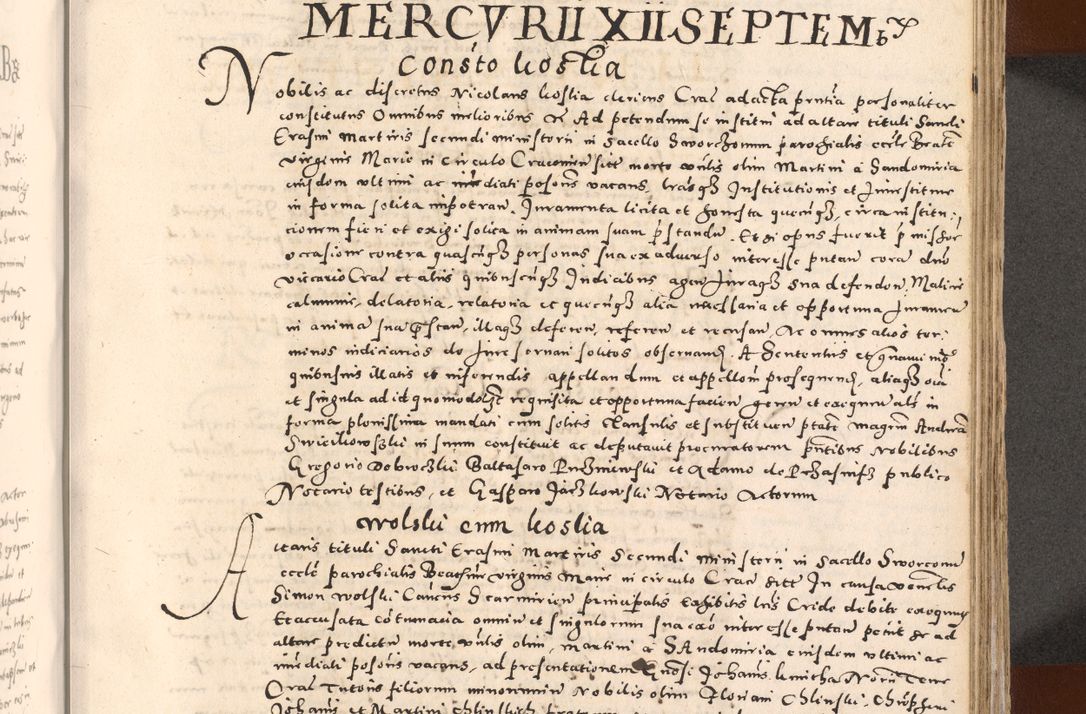 MERCVRII XII SEPTEMbr
Consto koslia
Nobilis ac discretus Nicolaus koslia clericus Crac ad acta pñtia personaliter
constitutus Omnibus melioribus Ad petendum se institui ad altare tituli Sancti
Erasmi Martiris secundi ministerii in Sacello Sworchonum parochialis eccle Beate
virginis Marie in circulo Cracovien sitt morte olim Martini à Sandomiria
eiusdem ultimi ac immediati posoris vacans, Institutionis et Investiture
in forma solita impetran. Iuramenta licita et honesta quecunqz circa institu-
cionem fieri et exigi solita in animam suam prestandu. Et si opus fuerit premissor
occasione contra quascunqz personas sua ex adverso interesse putan cora dno
vicario Crac et aliis quibuscunqz Iudicibus agen Iuraqz sua defenden, Malicie
calumnie, delatoria, relatoria et quecunqz alia necessaria et opportuna Iurament
in anima sua prestan, illaqz deferen, referen et recusan, Ac omnes alios ter-
minos iudiciarios de Iure servari solitos observand. A Sententiis et
quibusvis illatis et inferendis appellandum et appellaom prosequend, aliaqz oia
et singula ad id quomodolzt requisita et opportuna facien geren et exequen als in
forma plenissima mandati cum solitis clausulis et substituen ptate magrm Andream
in suum constituit ac deputavit procuratorem pñtibus Nobilibus
Gregorio Baltasaro et Adamo de publico
Notario testibus, et Gasparo Notario Actorum
Wolski cum koslia
Altaris tituli Sancti Erasmi Martiris Secundi ministerii in Sacello Sworconu
eccle parochialis Beatissime virginis Marie in circulo Crac sitt In causa
Simon Wolski principalis Exhibitis lris Cride debite exequu
Et accusata cotumacia omniu et singulorum sua eão interesse putan petiit se ad
altare predictu morte olim Martini à SAndomiria eiusdem ultimi ac
imediati posoris vacans, ad presentationem Gnosi Johanis
Crac Tutoris filiorum minorennium Nobilis olim Floriani Chlinski,
Johanis et Martini